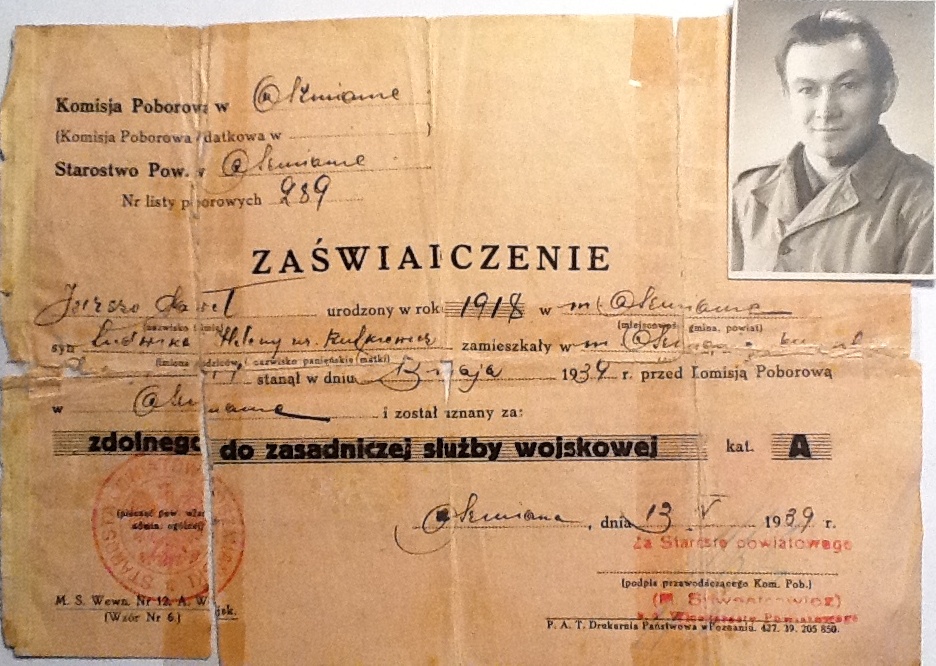 Komisja Poborowa w Oszmianie
(Komisja Poborowa dodatkowa w )
Starostwo Pow. w Oszmianie
Nr listy poborowych 289
ZAŚWIADCZENIE
Paweł urodzony w rok 1918 w m Oszmiana
(nazwisko i imię) (miejscowość, gmina, powiat)
syn Ludwika Heleny zamieszkały w m
(imiona rodziców i nazwisko panieńskie matki)
stanął w dniu 13 maja 1939 r. przed Komisją Poborową
w Oszmianie i został uznany za:
zdolnego do zasadniczej służby wojskowej kat. A
(pieczęć pow. władzy
admin. ogólnej)
Oszmiana, dnia 13 V 1939 r.
Za Starostę powiatowego
(podpis przewodniczącego Kom. Pob.)
M. S. Wewn. Nr 12. A. Wojsk.
(Wzór Nr 6.)
P. A. T. Drukarnia Państwowa w Poznaniu. 427. 39. 205 850.